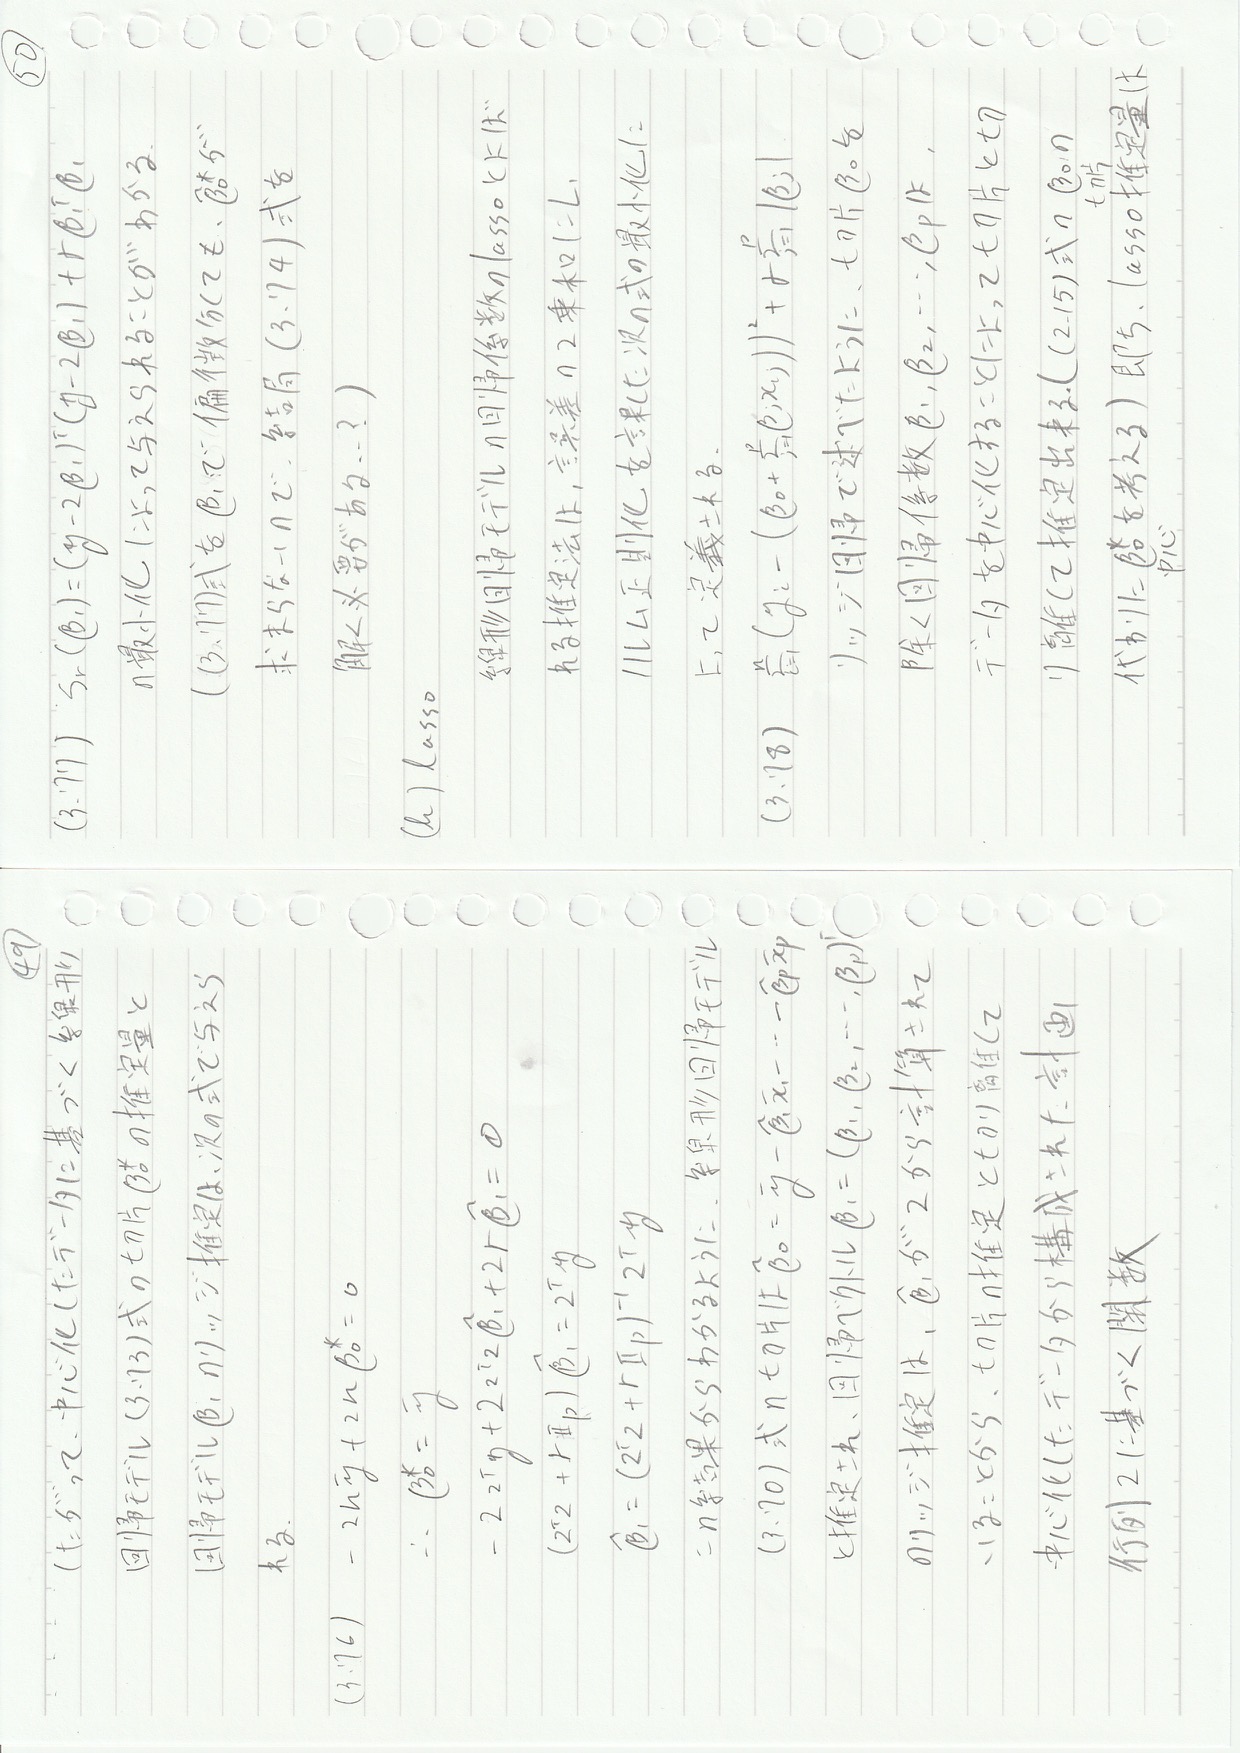 ㊾
したがって、中心化したデータに基づく線形
回帰モデル(3.73)式の切片β₀*の推定量と
回帰モデルβ₁のリッジ推定は、次の式で与えら
れる.
(3.76) -2nȳ+2nβ₀*=0
∴ β₀*=ȳ
-2Zᵀy+2ZᵀZβ̂₁+2rβ̂₁=0
(ZᵀZ+rIp)β̂₁=Zᵀy
β̂₁=(ZᵀZ+rIp)⁻¹Zᵀy
この結果からわかるように、線形回帰モデル
(3.70)式の切片はβ̂₀=ȳ-β̂₁x̄₁-…-β̂px̄p
と推定され、回帰ベクトルβ₁=(β₁,β₂,…,βp)ᵀ
のリッジ推定は、β̂₁がZから計算されて
いることから、切片の推定と切り離して
中心化したデータから構成された計画
行列Zに基づく関数
㊿
(3.77) Sr(β₁)=(y-Zβ₁)ᵀ(y-Zβ₁)+rβ₁ᵀβ₁
の最小化によって与えられることがわかる.
((3.77)式をβ₁で偏微分しても、β₀*が
求まらないので、結局(3.74)式を
解く必要がある…?)
(h) lasso
線形回帰モデルの回帰係数のlassoとよば
れる推定法は、誤差の2乗和にL₁
ノルム正則化を課した次の式の最小化に
よって定義される.
(3.78) Σⁿᵢ₌₁(yᵢ-(β₀+Σᵖⱼ₌₁βⱼxᵢⱼ))²+rΣᵖⱼ₌₁|βⱼ|
リッジ回帰で述べたように、切片β₀を
除く回帰係数β₁,β₂,…,βpは、
データを中心化することによって切片と切
り離して推定出来る.((2.15)式のβ₀の
切片
代わりにβ₀*を考える)即ち、lasso推定量は
中心